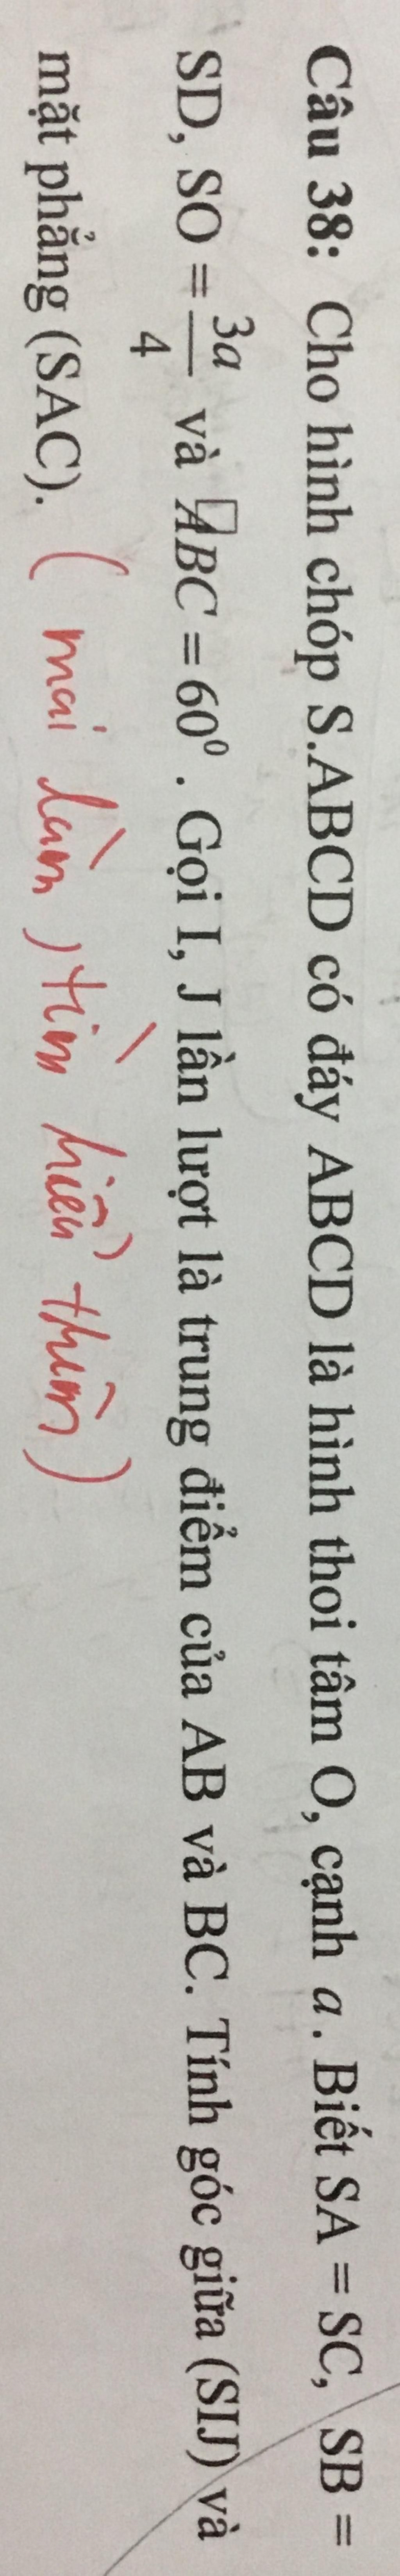 Câu 38: Cho hình chóp S.ABCD có đáy ABCD là hình thoi tâm O, cạnh a. Biết SA = SC, SB =
SD, SO = 3a/4 và ABC = 60⁰. Gọi I, J lần lượt là trung điểm của AB và BC. Tính góc giữa (SIJ) và
mặt phẳng (SAC). ( mai làm, tìm hiểu thêm )